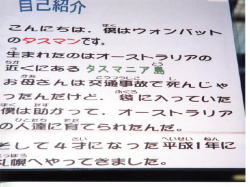 自己紹介
こんにちは、僕はウォンバット
のタスマンです。
生まれたのはオーストラリアの
近くにあるタスマニア島
お母さんは交通事故で死んじゃ
ったんだけど、袋に入っていた
僕は助かって、オーストラリア
の人達に育てられたんだ。
そして4才になった平成1年に
札幌へやってきました。